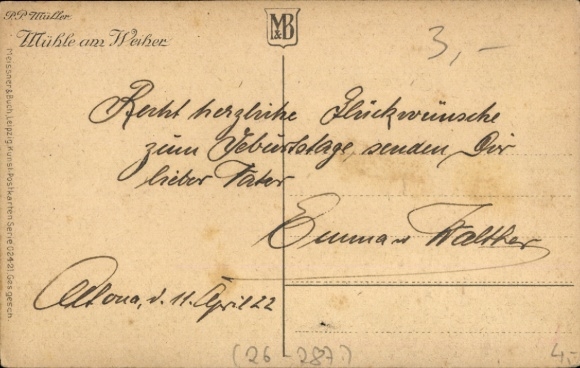 P.P. Müller.
Mühle am Weiher
M&B
3,-
Meissner & Buch, Leipzig, Kunst-Postkarten Serie
Ges. gesch.
Recht herzliche Glückwünsche
zum Geburtstage, senden Dir
lieber Vater
Emma u Walther
Altona, d. 11. April 22
(26-287)
4,-